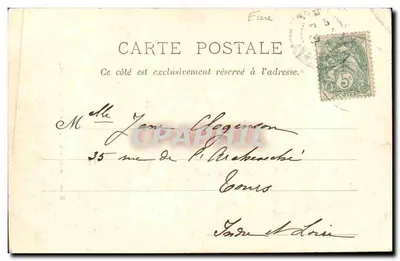 Eure
CARTE POSTALE
Ce côté est exclusivement réservé à l'adresse.
Melle Jane Clogenson
35 rue de l'Archevêché
Tours
Indre et Loire
5